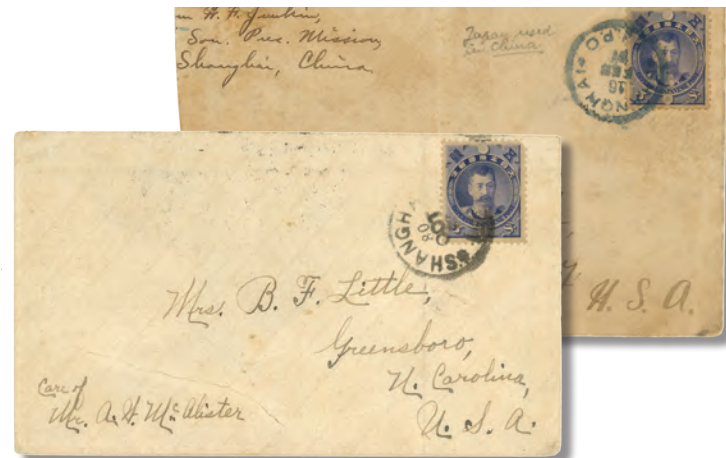 H. F. Junkin,
Sou. Pres. Mission,
Shanghai, China
Japan used
in China
SHANGHAI
I.J.P.O
16
FEB
U. S. A.
SHANGHA
OCT
Mrs. B. F. Little,
Greensboro,
N. Carolina,
U. S. A.
Care of
Mr. A. W. McAlister